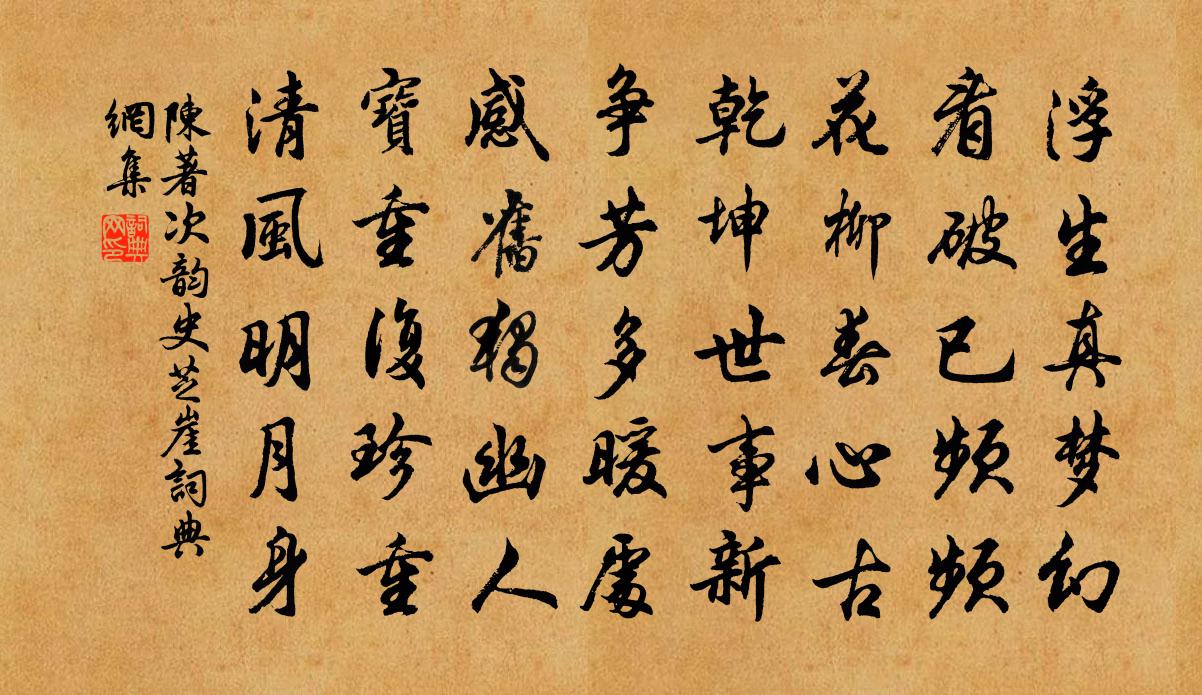 浮生真梦幻
看破已频频
花柳春心古
乾坤世事新
争芳多暖處
感舊独幽人
寶重復珍重
清風明月身
陳著次韵史芝崖詞典
網集
詞典
网印